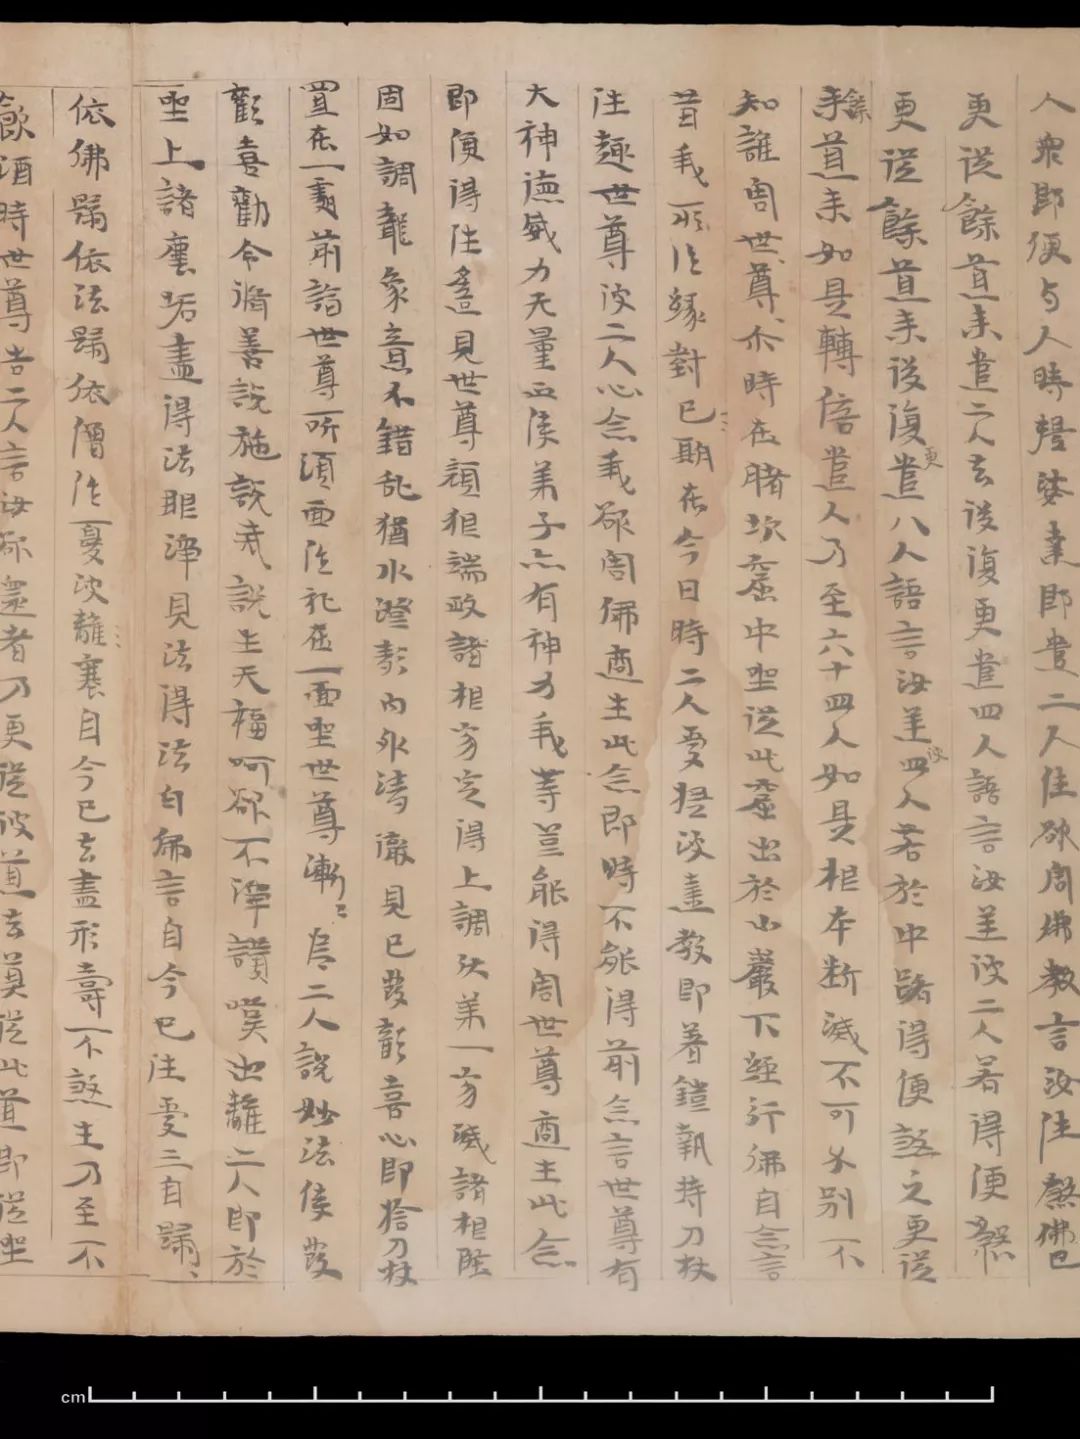 人衆即便与人時提婆達即遣二人住欲周佛教言汝往煞佛已
更従餘道来遣二人去後復更遣四人語言汝羊彼二人若得便煞
更従餘道来後復遣更八人語言汝羊彼四人若於中路得便煞之更従
餘道来如是轉倍遣人乃至六十四人如是相本断滅不可分别不
知誰周世尊尒時在睹坎窟中坐従此窟出於山巖下經行佛自念言
昔我所作縁對已期在今日時二人受提婆達教即着鎧執持刀杖
往趣世尊彼二人心念我欲周佛適生此念即時不能得前念言世尊有
大神徳威力无量且侯弟子亦有神力我等豈能得周世尊適生此念
即便得往遥見世尊顔㒵端政諸相寂定得上調伏第一寂滅諸相堅
固如調龍象意不錯乱猶水澄清内外清徹見已發歡喜心即捨刀杖
置在一處前詣世尊所頭面作礼在一面坐世尊漸〻為二人説妙法使發
歡喜勸令脩善説施説戒説生天福呵欲不浄讃嘆出離二人即於
坐上諸塵垢盡得法眼浄見法得法白佛言自今已往受三自歸
依佛歸依法歸依僧作憂波離襄自今已去盡形壽不煞生乃至不
飲酒時世尊告二人言汝欲還者乃更従彼道去莫従此道即従坐